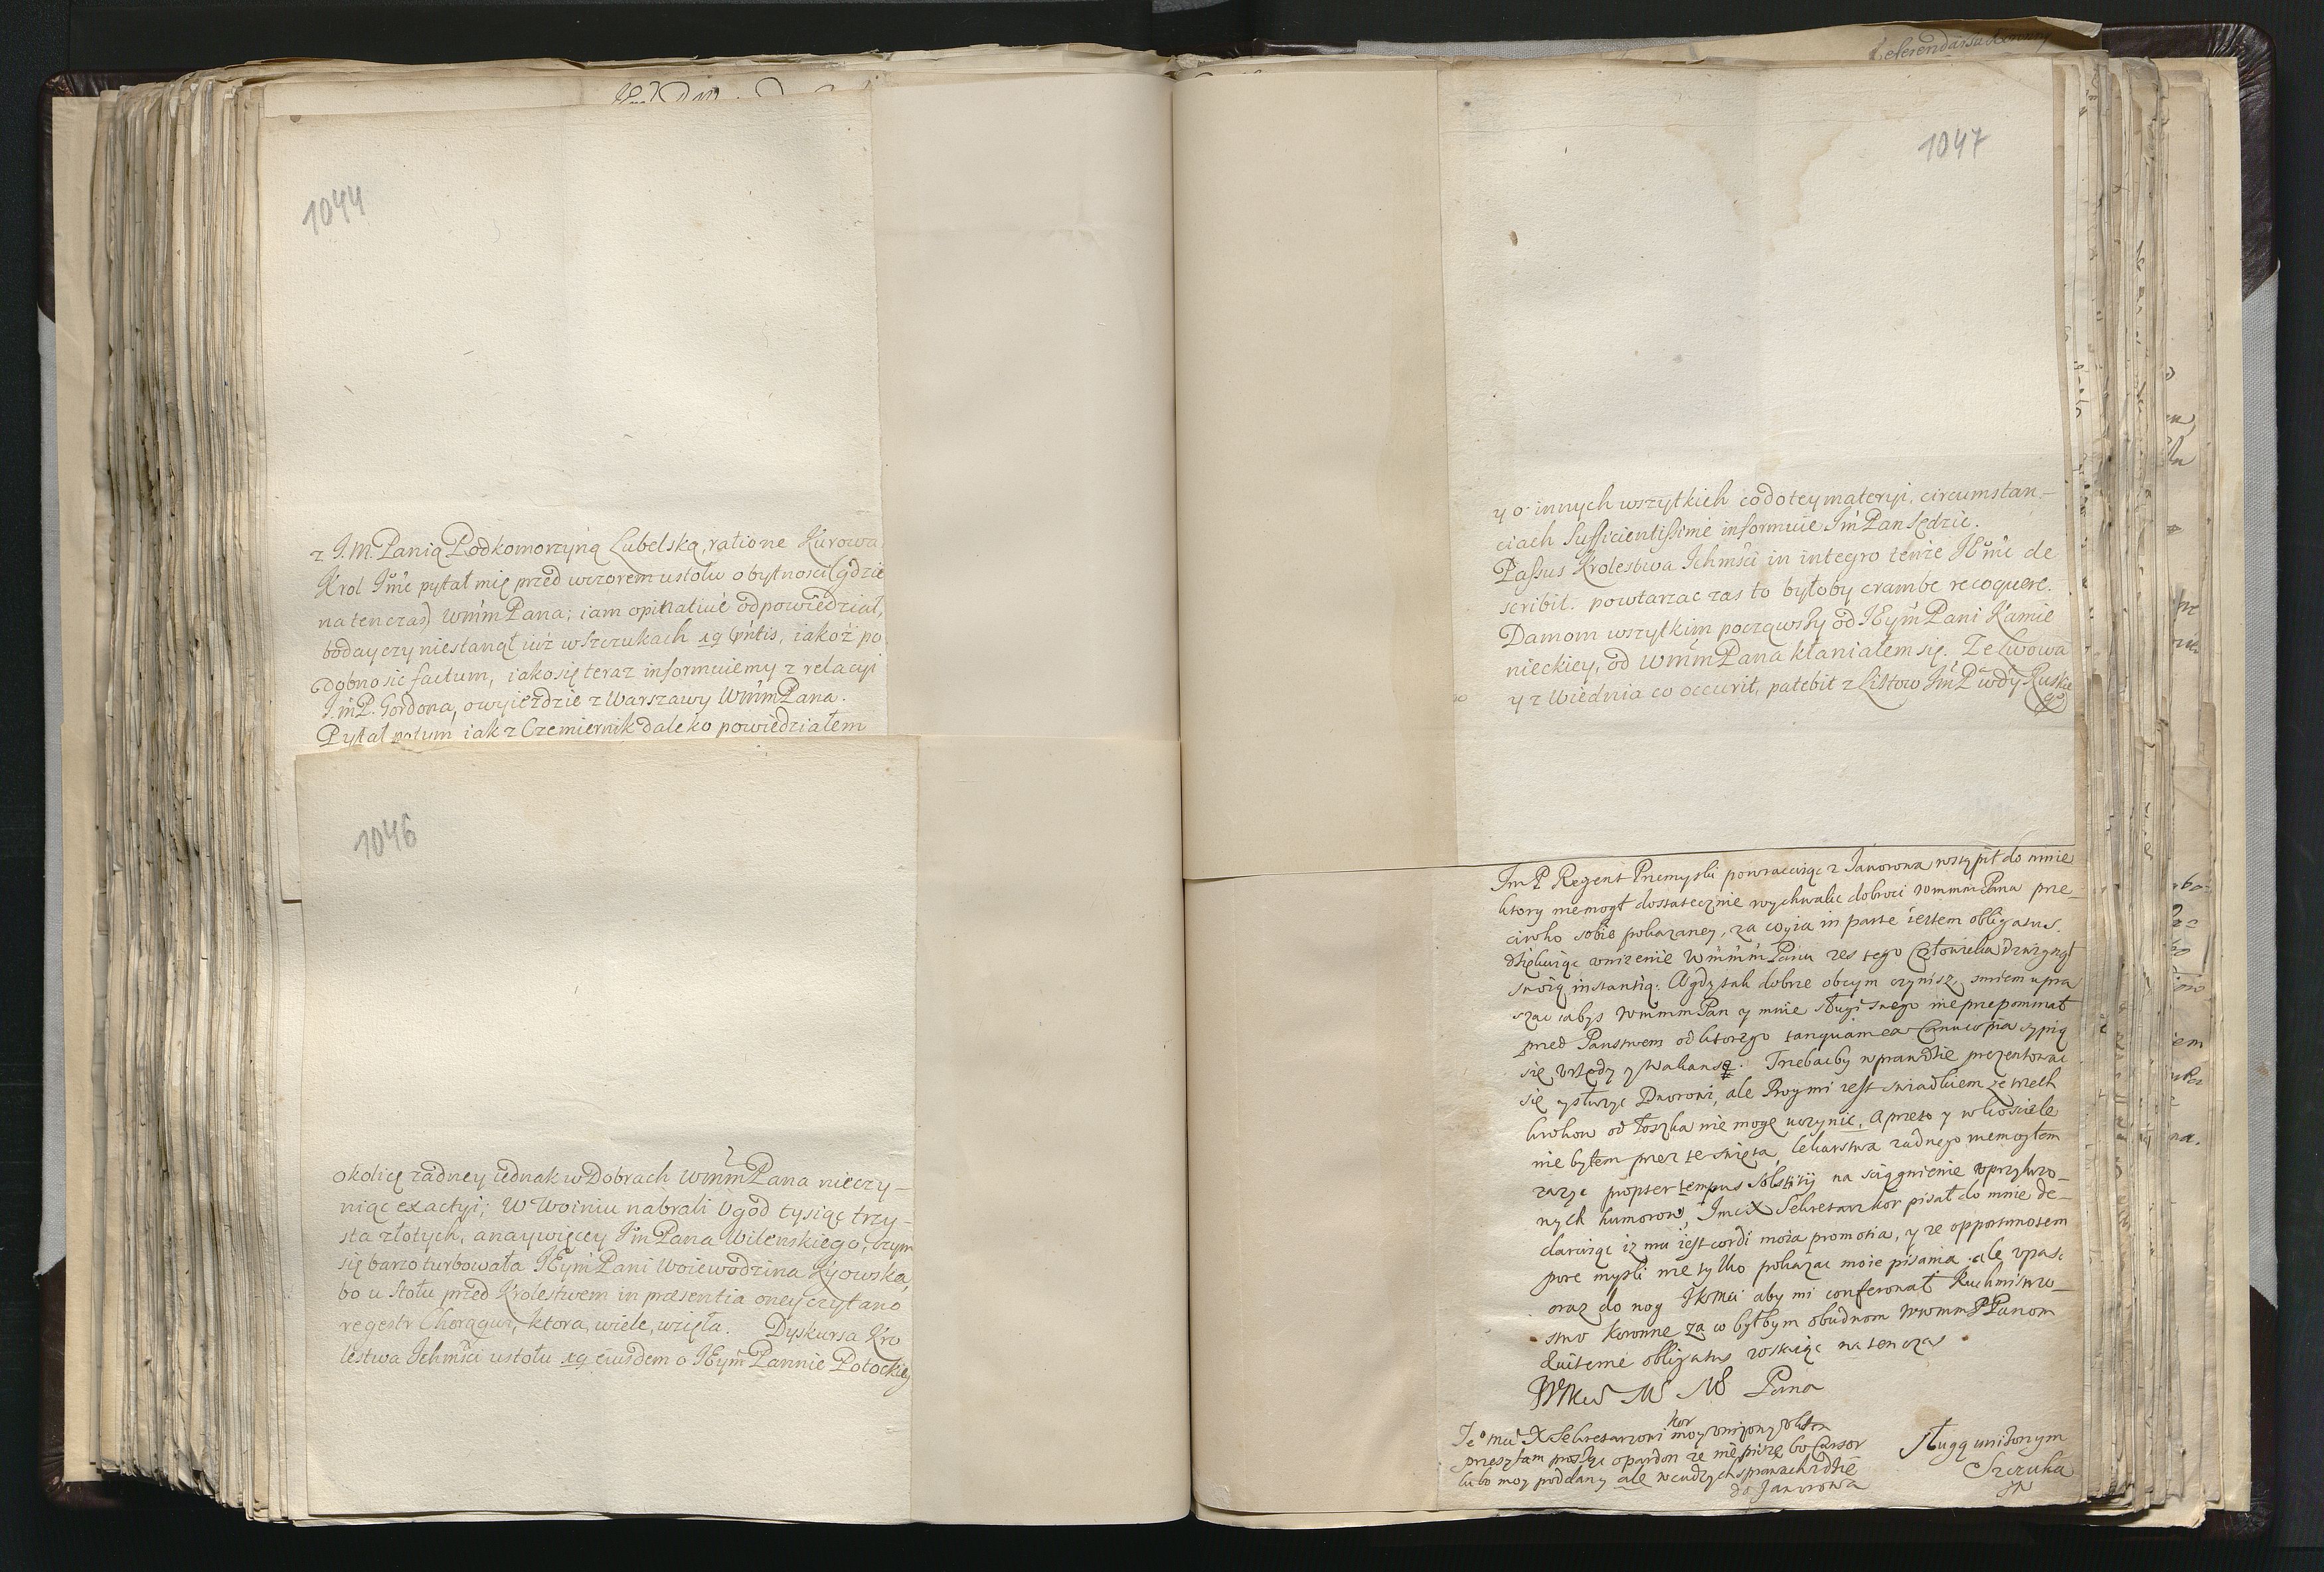 1044
z J.M. Panią Podkomorzyną Lubelską, ratione Kurowa
Krol Jmć pytał mię przed wczorem u stołu o bytnosci (gdzie
na ten czas) WmmPana; iam opinative odpowiedział,
boday czy niestanął iuż w Szczukach 19 pntis, iakoż po
dobno sic factum, iako się teraz informuiemy z relacyi
J.mP. Gordona, o wyiezdzie z Warszawy WmmPana.
Pytał potym iak z Czemiernik daleko powiedziałem
1046
okolicę żadney iednak w Dobrach WmmPana nieczy-
niąc exactyi; W Woiniu nabrali Ugod tysiąc trzy-
sta złotych, a naywięcey JmPana Wilenskiego; czym
się barzo turbowała JEymPani Woiewodzina Kijowska,
bo u stołu przed Krolestwem in præsentia oney czytano
regestr Chorągwi, ktora, wiele, wzięła. Dyskursa Kro
lestwa Ichmści u stołu 19 eiusdem o JEym Pannie Potockiey
1047
y o innych wszytkich co do tey materyi, circumstan-
ciach sufficientissime informuie JmPan Sędzic.
Passus Krolestwa Ichmści in integro tenże JEmć de
scribit. powtarzac zas to byłoby crambe recoquere.
Damom wszytkim począwszy od JEymPani Kamie
nieckiey, od WmmPana kłaniałem się. Ze Lwowa
y z Wiednia co occurit, patebit z Listow JmP Wdy Ruskie
go
JmP Regent Przemyski powracaiąc z Jaworowa wstąpił do mnie
ktory niemogł dostatecznie wychwalic dobroci WmmmPana prze-
ciwko sobie pokazaney, za co y ia in parte iestem obligatus.
dziękuiąc unizenie WmmmPanu zes tego Człowieka dzwignął
swoią instantią. A gdy tak dobrze obcym czynisz, smiem upra
szac iabys WmmmPan y mnie sługi swego nie przepominał
przed Panstwem od ktorego tanquam ex Cornucopia sypią
się Urzędy y Wakanse. Trzebaćby wprawdzie prezentowac
się y słuzyc Dworowi, ale Bog mi iest swiadkiem ze trzech
krokow od łoszka nie mogę uczynic, A przeto y w kosciele
nie byłem przez te swięta, lekarstwa zadnego niemogłem
zazyc propter tempus Solstitij na sciągnienie uprzykrzo-
nych humorow, Jmc X Sekretarz kor pisał do mnie de-
claruiąc iz mu iest cordi moia promotia, y ze opportuno tem
pore mysli nie tylko pokazac moie pisania ale upasc
oraz do nog JKMci aby mi conferował Kuchmistrzo-
stwo Koronne za co byłbym obudwom WwmmPPanom
obligatus zostaiąc na ten czas
Pana
Je°mci X Sekretarzowi kor moy unizony
przesyłam proszę o pardon ze nie piszę bo Cursor
lubo moy poddany ale w cudzych sprawach idzie
do Jaworowa
sługą unizonym
Szczuka